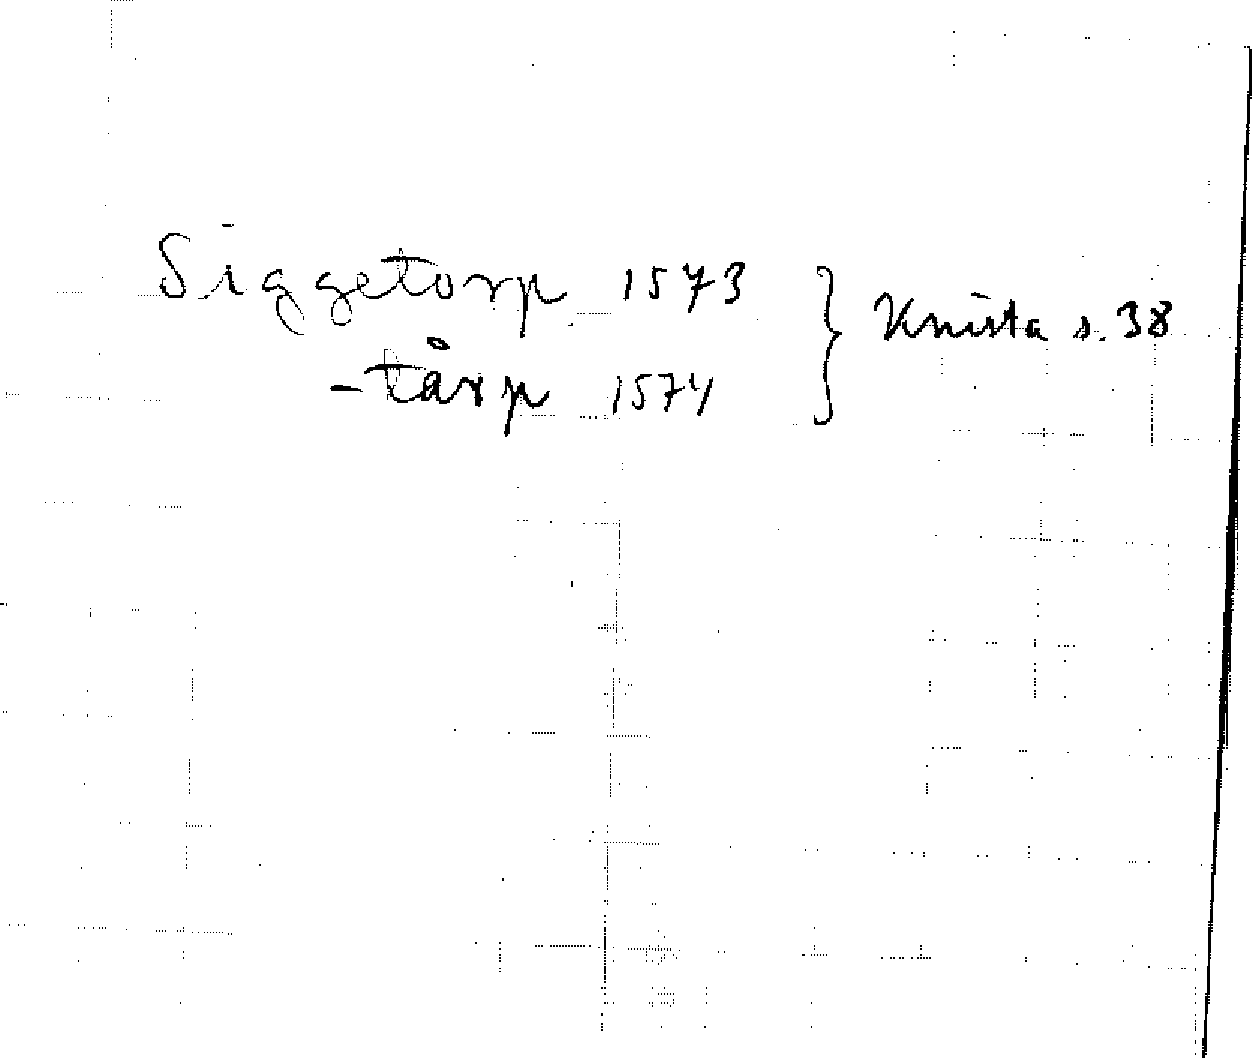 Siggetorp 1573 } Knista s. 38
-tårp 1574